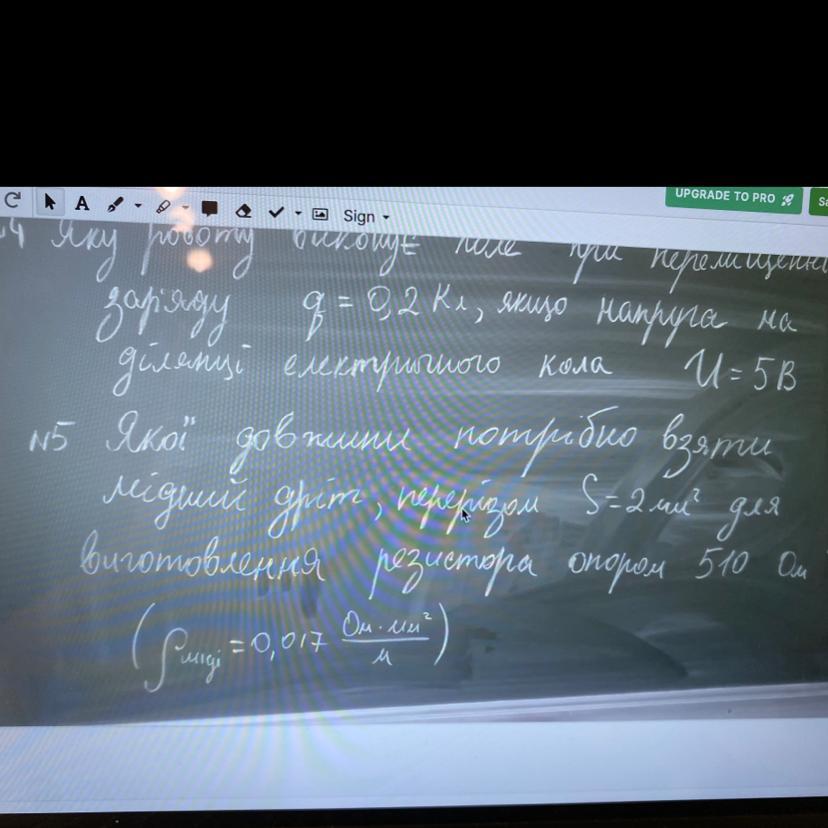 A
Sign
UPGRADE TO PRO
Яку роботу виконує поле при переміщенні
заряду q = 0,2 Кл, якщо напруга на
ділянці електричного кола U = 5 В
№5 Якої довжини потрібно взяти
мідний дріт, перерізом S = 2 мм² для
виготовлення резистора опором 510 Ом
(ρміді = 0,017 Ом·мм²/м)